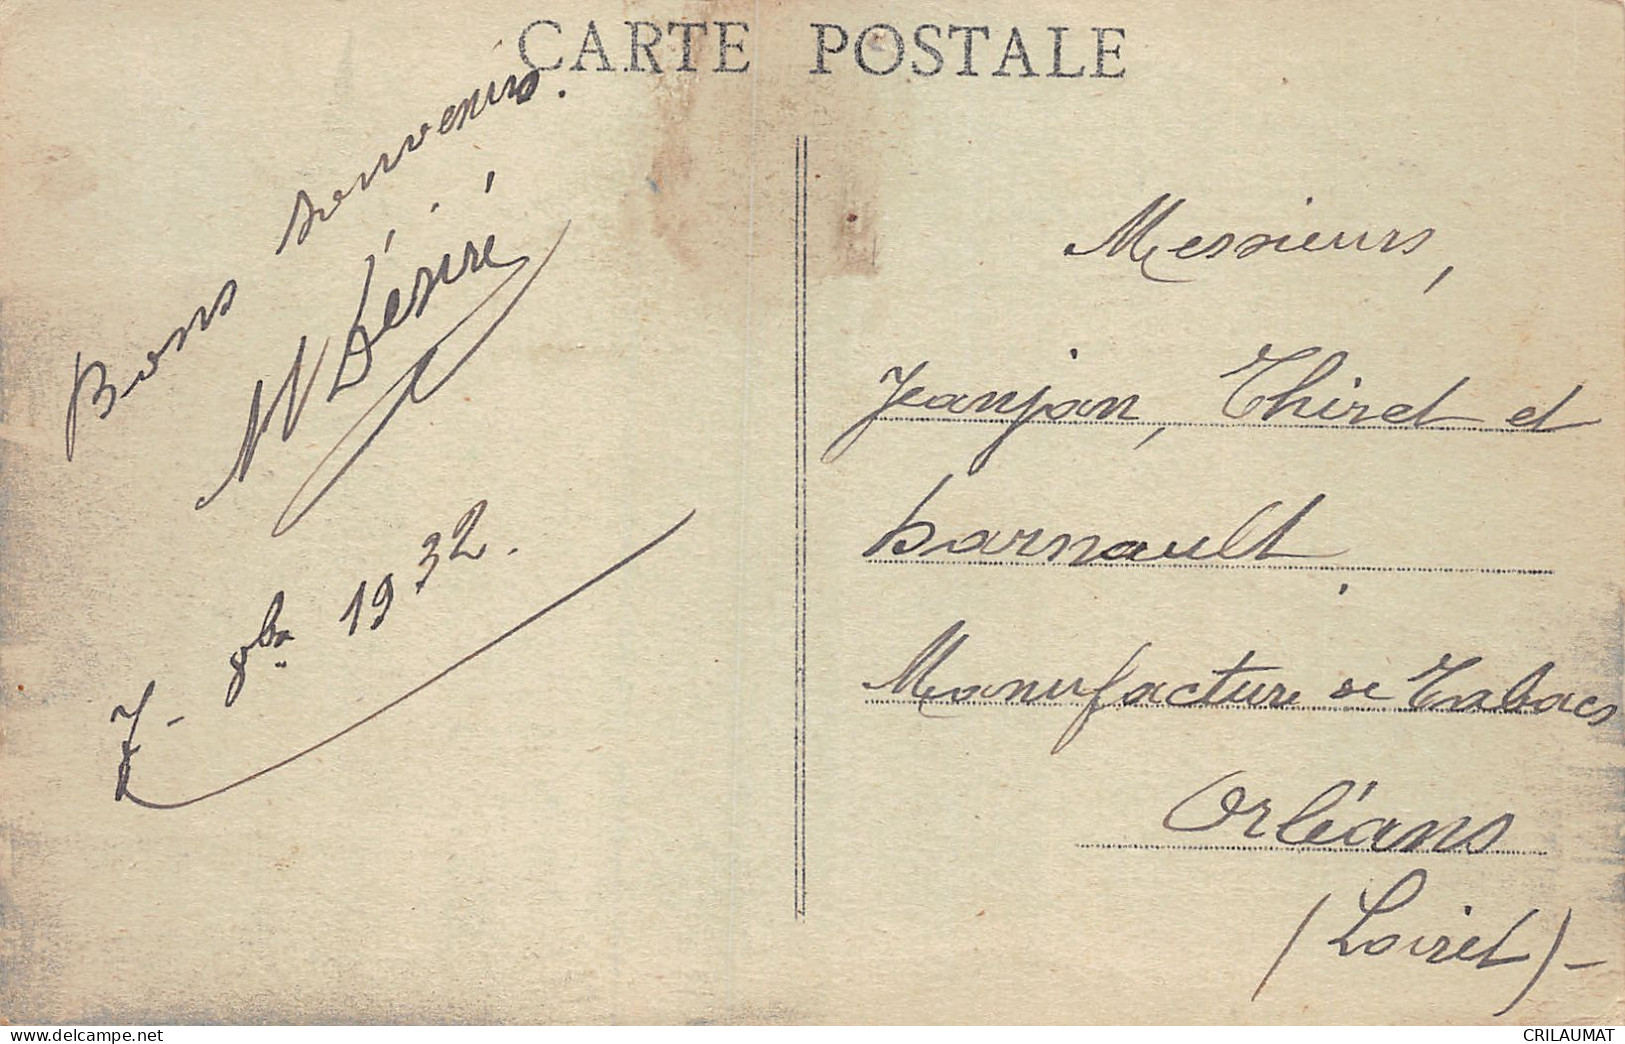 CARTE POSTALE
Bons souvenirs.
Désiré
7 - 8bre 1932.
Messieurs,
Jeanjan, Thiret et
Darnault.
Manufacture de Tabacs
Orléans
(Loiret) -
www.delcampe.net
CRILAUMAT